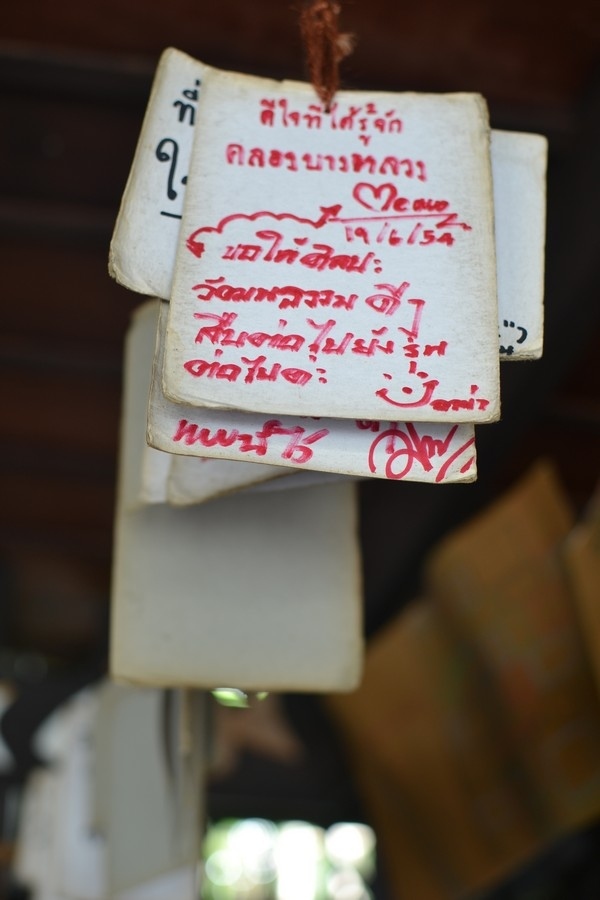 ดีใจที่ได้รู้จัก
คลองบางหลวง
Meaw
19/6/54
ขอให้ศิลปะ
วัฒนธรรม ดีๆ
สืบต่อไปยังรุ่น
ต่อไปค่ะ
แบบนี้ไว้
ที่